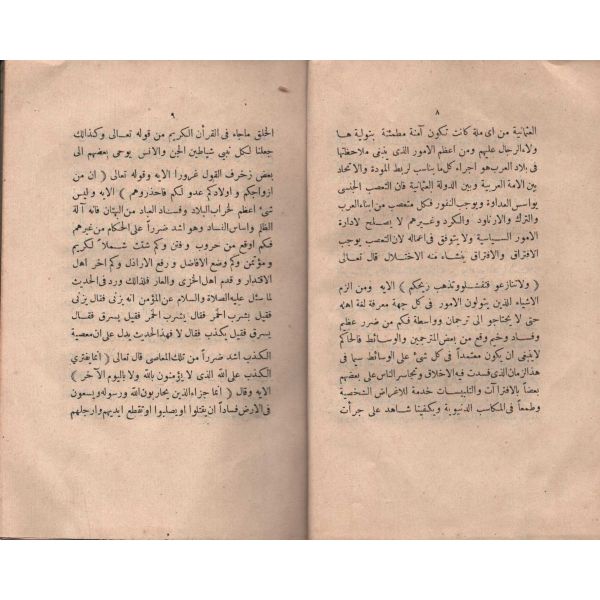 ٨
العثمانية من اى ملة كانت تكون آمنة مطمئنة بتولية هاؤ
لاء الرجال عليهم ومن اعظم الامور الذى ينبغى ملاحظتها
فى بلاد العرب هو اجراء كل ما يناسب لربط المودة والاتحاد
بين الامة العربية وبين الدولة العثمانية فان التعصب الجنسى
يواسس العداوة ويوجب النفور فكل متعصب من ابناء العرب
والترك والارناود والكرد وغيرهم لا يصلح لادارة
الامور السياسية ولا يتوفق فى اعماله لان التعصب يوجب
الافتراق والافتراق ينشاء منه الاختلال قال تعالى
( ولا تنازعو فتفشلو وتذهب ريحكم ) الايه ومن الزم
الاشياء للذين يتولون الامور فى كل جهة معرفة لغة اهله
حتى لا يحتاجو الى ترجمان وواسطة فكم من ضرر عظيم
وفساد وخيم وقع من بعض المترجمين والوسائط فالحاكم
لا ينبغى ان يكون معتمداً فى كل شئ على الوسائط سيما فى
هذا الزمان الذى فسدت فيه الاخلاق وتجاسر الناس على بعضهم
بعضاً بالافترآت والتلبيسات خدمة للاغراض الشخصية
وطمعاً فى المكاسب الدنيوية ويكفينا شاهد على جرأت
٩
الخلق ما جاء فى القرأن الكريم من قوله تعالى وكذالك
جعلنا لكل نبى شياطين الجن والانس يوحى بعضهم الى
بعض زخرف القول غرورا الايه وقوله تعالى ( ان من
ازواجكم واولادكم عدو لكم فاحذروهم ) الايه وليس
شئ اعظم لخراب البلاد وفساد العباد من البهتان فانه آلة
الظلم واساس الفساد وهو اشد ضرراً على الحكام من غيرهم
فكم اوقع من حروب وفتن وكم شتت شملاً لكريم
ومؤتمن وكم وضع الافاضل ورفع الاراذل وكم اخر اهل
الاقتدار وقدم اهل الخزى والعار فلذالك ورد فى الحديث
لما سئل عليه الصلاة والسلام عن المؤمن انه يزنى فقال يزنى
فقيل يشرب الخمر فقال يشرب الخمر فقيل يسرق فقال
يسرق فقيل يكذب فقال لا فهذا الحديث يدل على ان معصية
الكذب اشد ضرراً من تلك المعاصى قال تعالى ( انما يفترى
الكذب على الله الذى لا يؤمنون بالله ولا باليوم الآخر )
الايه وقال ( انما جزاء الذين يحاربون الله ورسوله ويسعون
فى الارض فساداً ان يقتلوا او يصلبوا او تقطع ايديهم وارجلهم